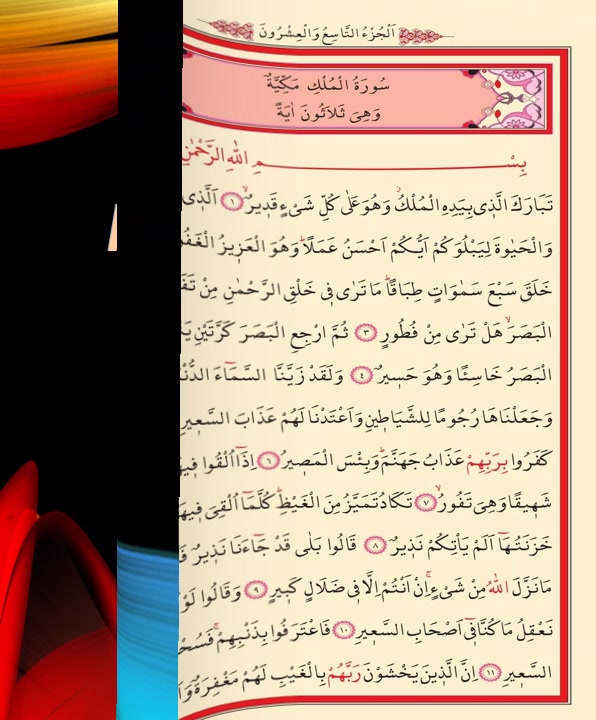 اَلْجُزْءُ التَّاسِعُ وَالْعِشْرُونَ
سُورَةُ الْمُلْكِ مَكِّيَّةٌ
وَهِىَ ثَلَاثُونَ اٰيَةً
بِسْمِ اللّٰهِ الرَّحْمٰنِ
تَبَارَكَ الَّذٖى بِيَدِهِ الْمُلْكُ وَهُوَ عَلٰى كُلِّ شَىْءٍ قَدٖيرٌ ﴿١﴾ اَلَّذٖى
وَالْحَيٰوةَ لِيَبْلُوَكُمْ اَيُّكُمْ اَحْسَنُ عَمَلًا وَهُوَ الْعَزٖيزُ الْغَفُ
خَلَقَ سَبْعَ سَمٰوَاتٍ طِبَاقًا مَا تَرٰى فٖى خَلْقِ الرَّحْمٰنِ مِنْ تَفَ
الْبَصَرَ هَلْ تَرٰى مِنْ فُطُورٍ ﴿٣﴾ ثُمَّ ارْجِعِ الْبَصَرَ كَرَّتَيْنِ يَنْ
الْبَصَرُ خَاسِئًا وَهُوَ حَسٖيرٌ ﴿٤﴾ وَلَقَدْ زَيَّنَّا السَّمَاءَ الدُّنْ
وَجَعَلْنَاهَا رُجُومًا لِلشَّيَاطٖينِ وَاَعْتَدْنَا لَهُمْ عَذَابَ السَّعٖيرِ
كَفَرُوا بِرَبِّهِمْ عَذَابُ جَهَنَّمَ وَبِئْسَ الْمَصٖيرُ ﴿٦﴾ اِذَا اُلْقُوا فٖيهَ
شَهٖيقًا وَهِىَ تَفُورُ ﴿٧﴾ تَكَادُ تَمَيَّزُ مِنَ الْغَيْظِ كُلَّمَا اُلْقِىَ فٖيهَ
خَزَنَتُهَا اَلَمْ يَاْتِكُمْ نَذٖيرٌ ﴿٨﴾ قَالُوا بَلٰى قَدْ جَاءَنَا نَذٖيرٌ فَ
مَا نَزَّلَ اللّٰهُ مِنْ شَىْءٍ اِنْ اَنْتُمْ اِلَّا فٖى ضَلَالٍ كَبٖيرٍ ﴿٩﴾ وَقَالُوا لَوْ
نَعْقِلُ مَا كُنَّا فٖى اَصْحَابِ السَّعٖيرِ ﴿١٠﴾ فَاعْتَرَفُوا بِذَنْبِهِمْ فَسُحْ
السَّعٖيرِ ﴿١١﴾ اِنَّ الَّذٖينَ يَخْشَوْنَ رَبَّهُمْ بِالْغَيْبِ لَهُمْ مَغْفِرَةٌ وَاَ